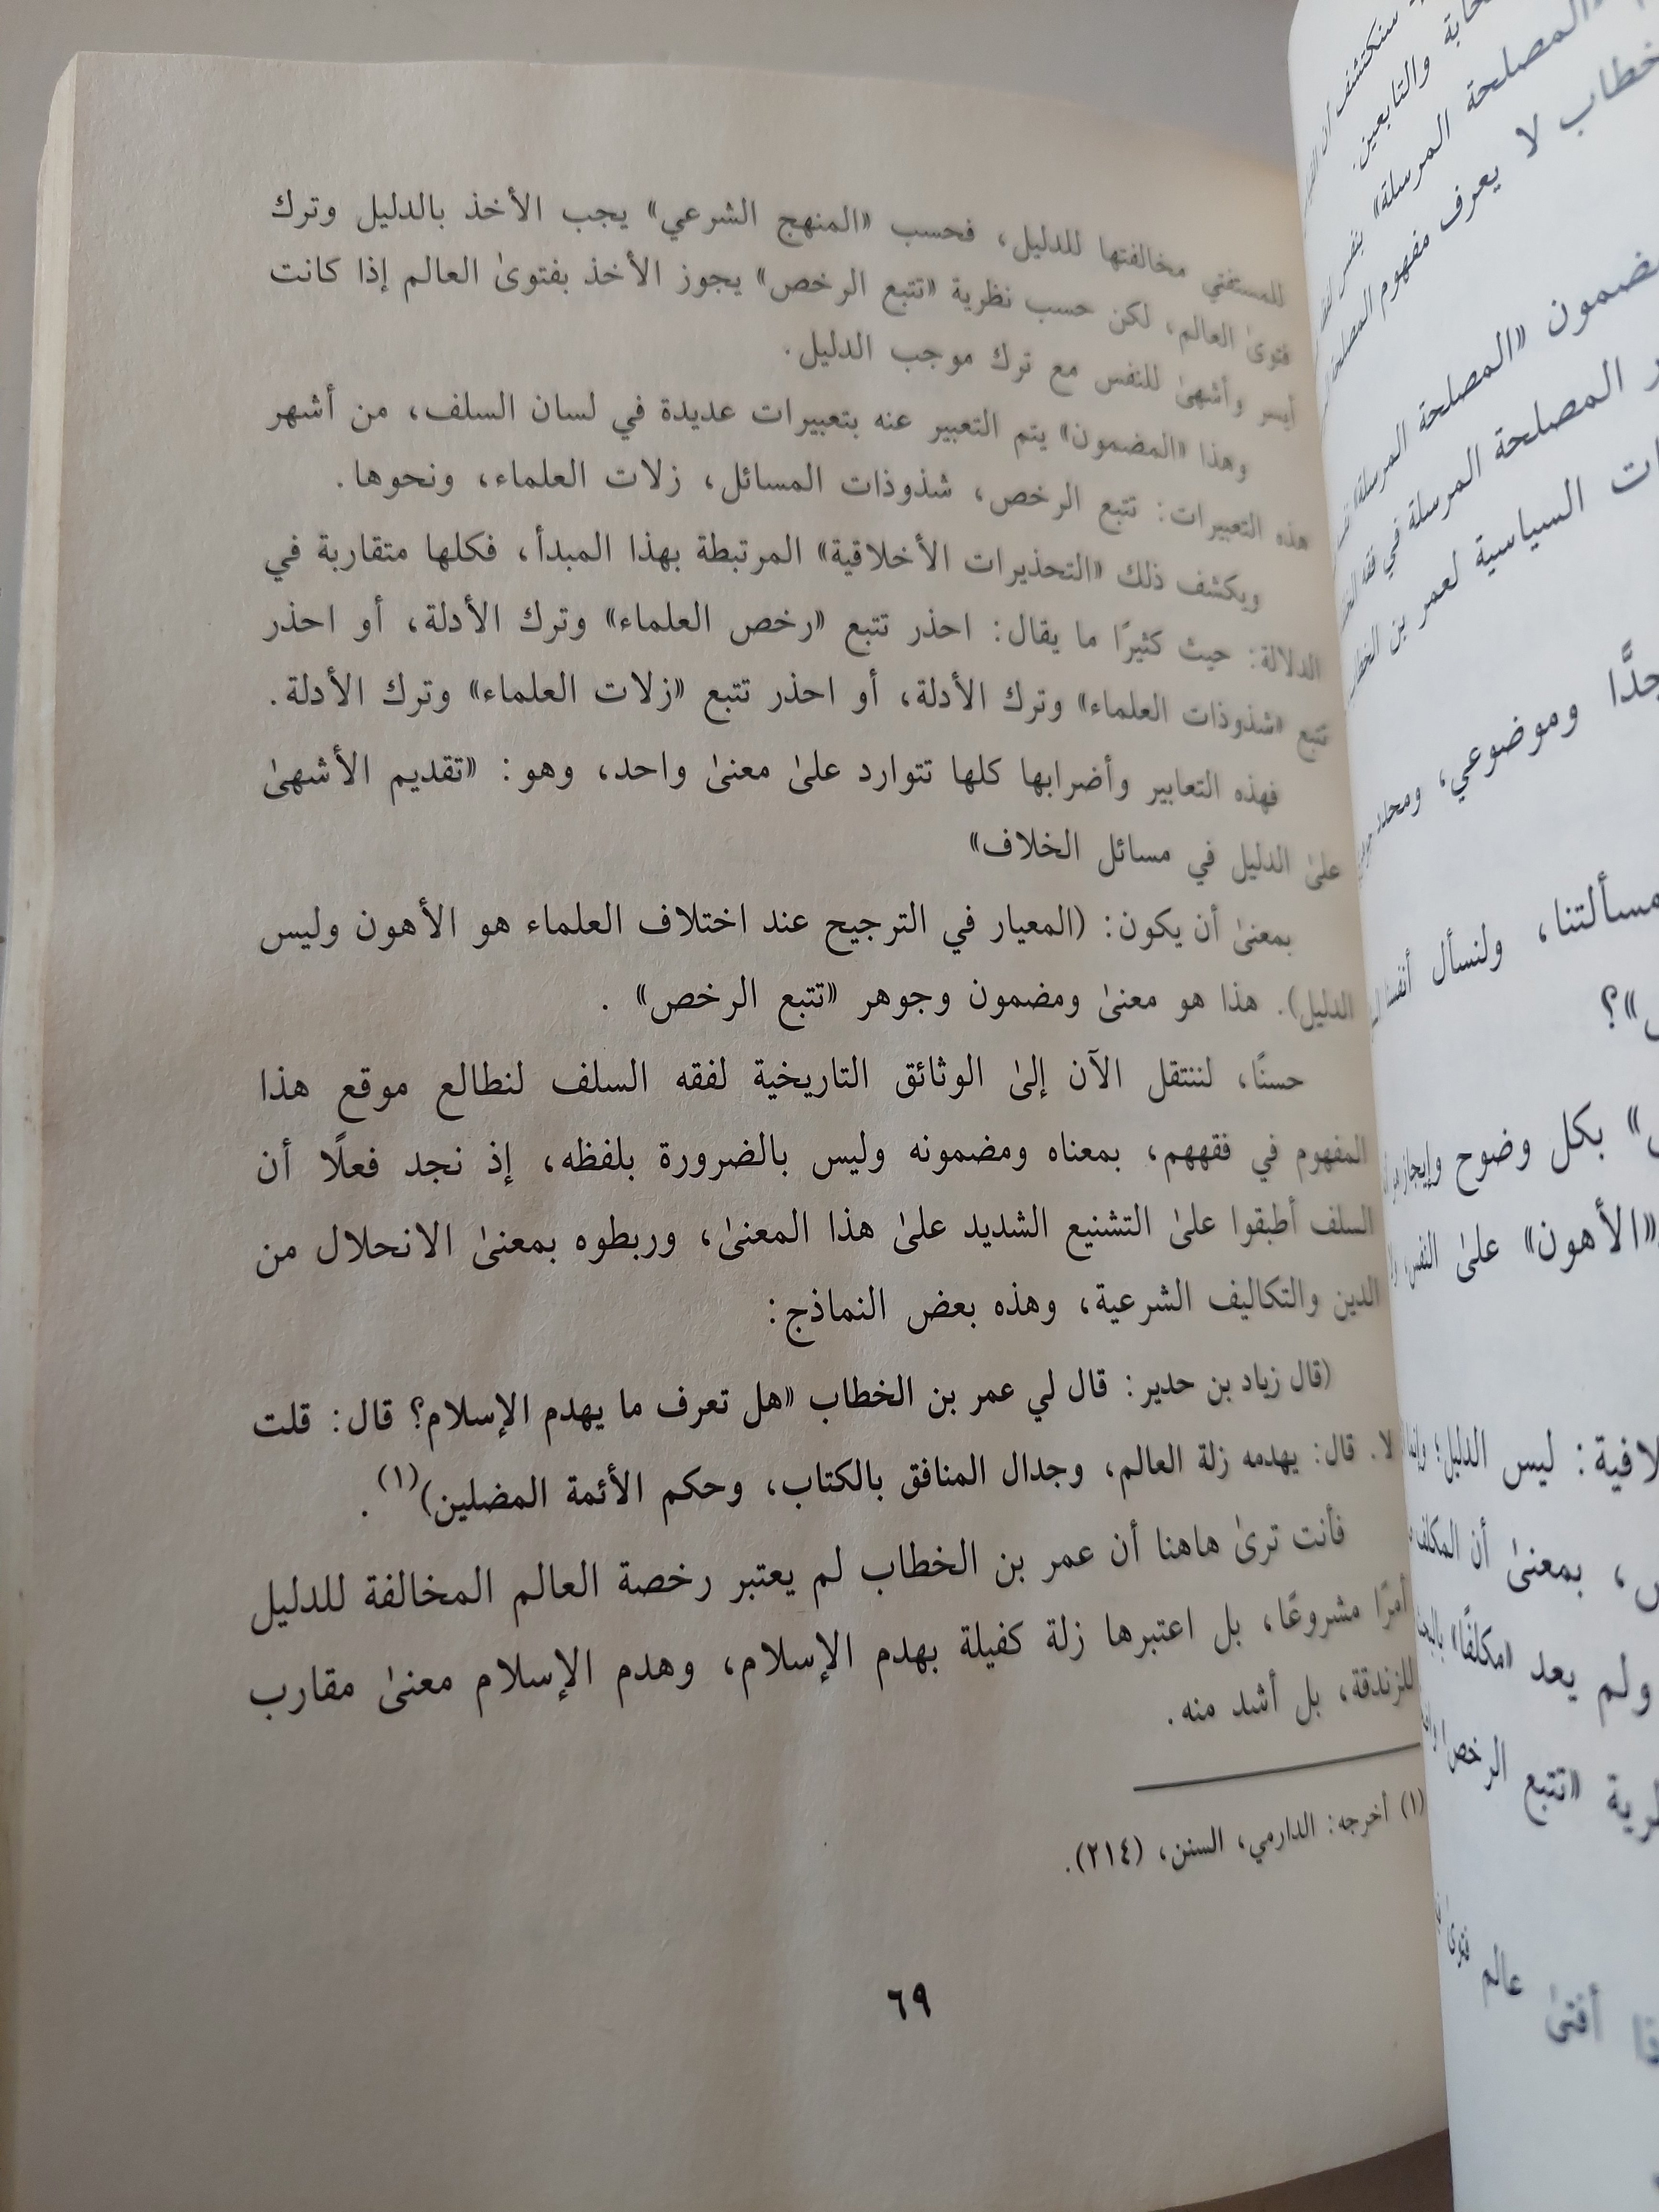 للمستفتي مخالفتها للدليل، فحسب «المنهج الشرعي» يجب الأخذ بالدليل وترك
فتوىٰ العالم، لكن حسب نظرية «تتبع الرخص» يجوز الأخذ بفتوىٰ العالم إذا كانت
أيسر وأشهىٰ للنفس مع ترك موجب الدليل.
وهذا «المضمون» يتم التعبير عنه بتعبيرات عديدة في لسان السلف، من أشهر
هذه التعبيرات: تتبع الرخص، شذوذات المسائل، زلات العلماء، ونحوها.
ويكشف ذلك «التحذيرات الأخلاقية» المرتبطة بهذا المبدأ، فكلها متقاربة في
الدلالة: حيث كثيرًا ما يقال: احذر تتبع «رخص العلماء» وترك الأدلة، أو احذر
تتبع «شذوذات العلماء» وترك الأدلة، أو احذر تتبع «زلات العلماء» وترك الأدلة.
فهذه التعابير وأضرابها كلها تتوارد علىٰ معنىٰ واحد، وهو: «تقديم الأشهىٰ
علىٰ الدليل في مسائل الخلاف»
بمعنىٰ أن يكون: (المعيار في الترجيح عند اختلاف العلماء هو الأهون وليس
الدليل). هذا هو معنىٰ ومضمون وجوهر «تتبع الرخص» .
حسنًا، لننتقل الآن إلىٰ الوثائق التاريخية لفقه السلف لنطالع موقع هذا
المفهوم في فقههم، بمعناه ومضمونه وليس بالضرورة بلفظه، إذ نجد فعلًا أن
السلف أطبقوا علىٰ التشنيع الشديد علىٰ هذا المعنىٰ، وربطوه بمعنىٰ الانحلال من
الدين والتكاليف الشرعية، وهذه بعض النماذج:
(قال زياد بن حدير: قال لي عمر بن الخطاب «هل تعرف ما يهدم الإسلام؟ قال: قلت
لا. قال: يهدمه زلة العالم، وجدال المنافق بالكتاب، وحكم الأئمة المضلين)(١) .
فأنت ترىٰ هاهنا أن عمر بن الخطاب لم يعتبر رخصة العالم المخالفة للدليل
أمرًا مشروعًا، بل اعتبرها زلة كفيلة بهدم الإسلام، وهدم الإسلام معنىٰ مقارب
للزندقة، بل أشد منه.
(١) أخرجه: الدارمي، السنن، (٢١٤).
٦٩
والتابعين.
المصلحة المرسلة»
لا يعرف مفهوم
«المصلحة المرسلة»
المصلحة المرسلة في فقه
السياسية لعمر بن
جدًّا وموضوعي، ومحدد
مسألتنا، ولنسأل
بكل وضوح وإيجاز
«الأهون» علىٰ النفس
ليس الدليل؛
بمعنىٰ أن المكلف
ولم يعد «مكلفًا»
«تتبع الرخص»
أفتىٰ عالم